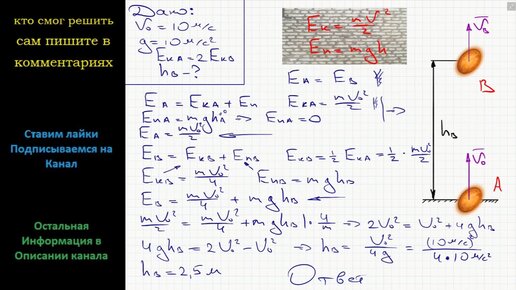 кто смог решить
сам пишите в
комментариях
Ставим лайки
Подписываемся на
Канал
Остальная
Информация в
Описании канала
Дано:
V₀ = 10 м/с
g = 10 м/с²
EкA = 2 EкB
hB - ?
Eк = mV²/2
Eп = mgh
EA = EB
EA = EкA + Eп EкA = mV₀²/2
EпA = mghA ⇒ EпA = 0
EA = mV₀²/2
EB = EкB + EпB EкB = 1/2 EкA = 1/2 · mV₀²/2
EкB = mV₀²/4 EпB = mghB
EB = mV₀²/4 + mghB
mV₀²/2 = mV₀²/4 + mghB | · 4/m ⇒ 2V₀² = V₀² + 4ghB
4ghB = 2V₀² - V₀² ⇒ hB = V₀²/4g = (10 м/с)²/4·10 м/с²
hB = 2,5 м Ответ
VB
B
hB
V₀
A